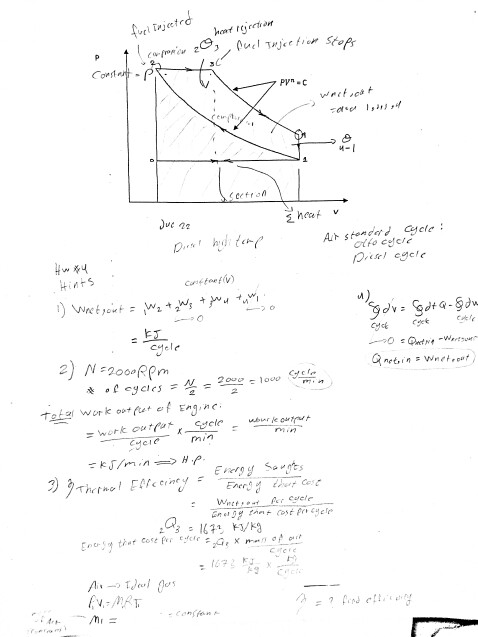 fuel Injected
heat rejection
2Q3
fuel Injection Stops
P
2
3
Constant = P
PVⁿ = C
Wnet,out
4
Q
4-1
0
1
suction
Σ heat
V
Air standard cycle:
Otto cycle
Diesel cycle
Diesel
temp
HW #4
Hints
constant(V)
1) Wnet,out = 1W2 + 2W3 + 3W4 + 4W1
→0 →0
= KJ/cycle
4)
cycle cycle cycle
→0 = Qnet,in - Wnet,out
Qnet,in = Wnet,out
2) N = 2000 Rpm
# of cycles = N/2 = 2000/2 = 1000 cycle/min
Total work output of Engine:
= work output/cycle × cycle/min = work output/min
= KJ/min ⇒ H.P.
3) η Thermal Efficiency = Energy Sought/Energy that cost
= Wnet,out per cycle/Energy that cost per cycle
2Q3 = 1673 KJ/kg
Energy that cost per cycle = 2Q3 × mass of air/cycle
= 1673 KJ/kg × kg/cycle
Air → Ideal gas
M1 =
= constant
= ? find efficiency